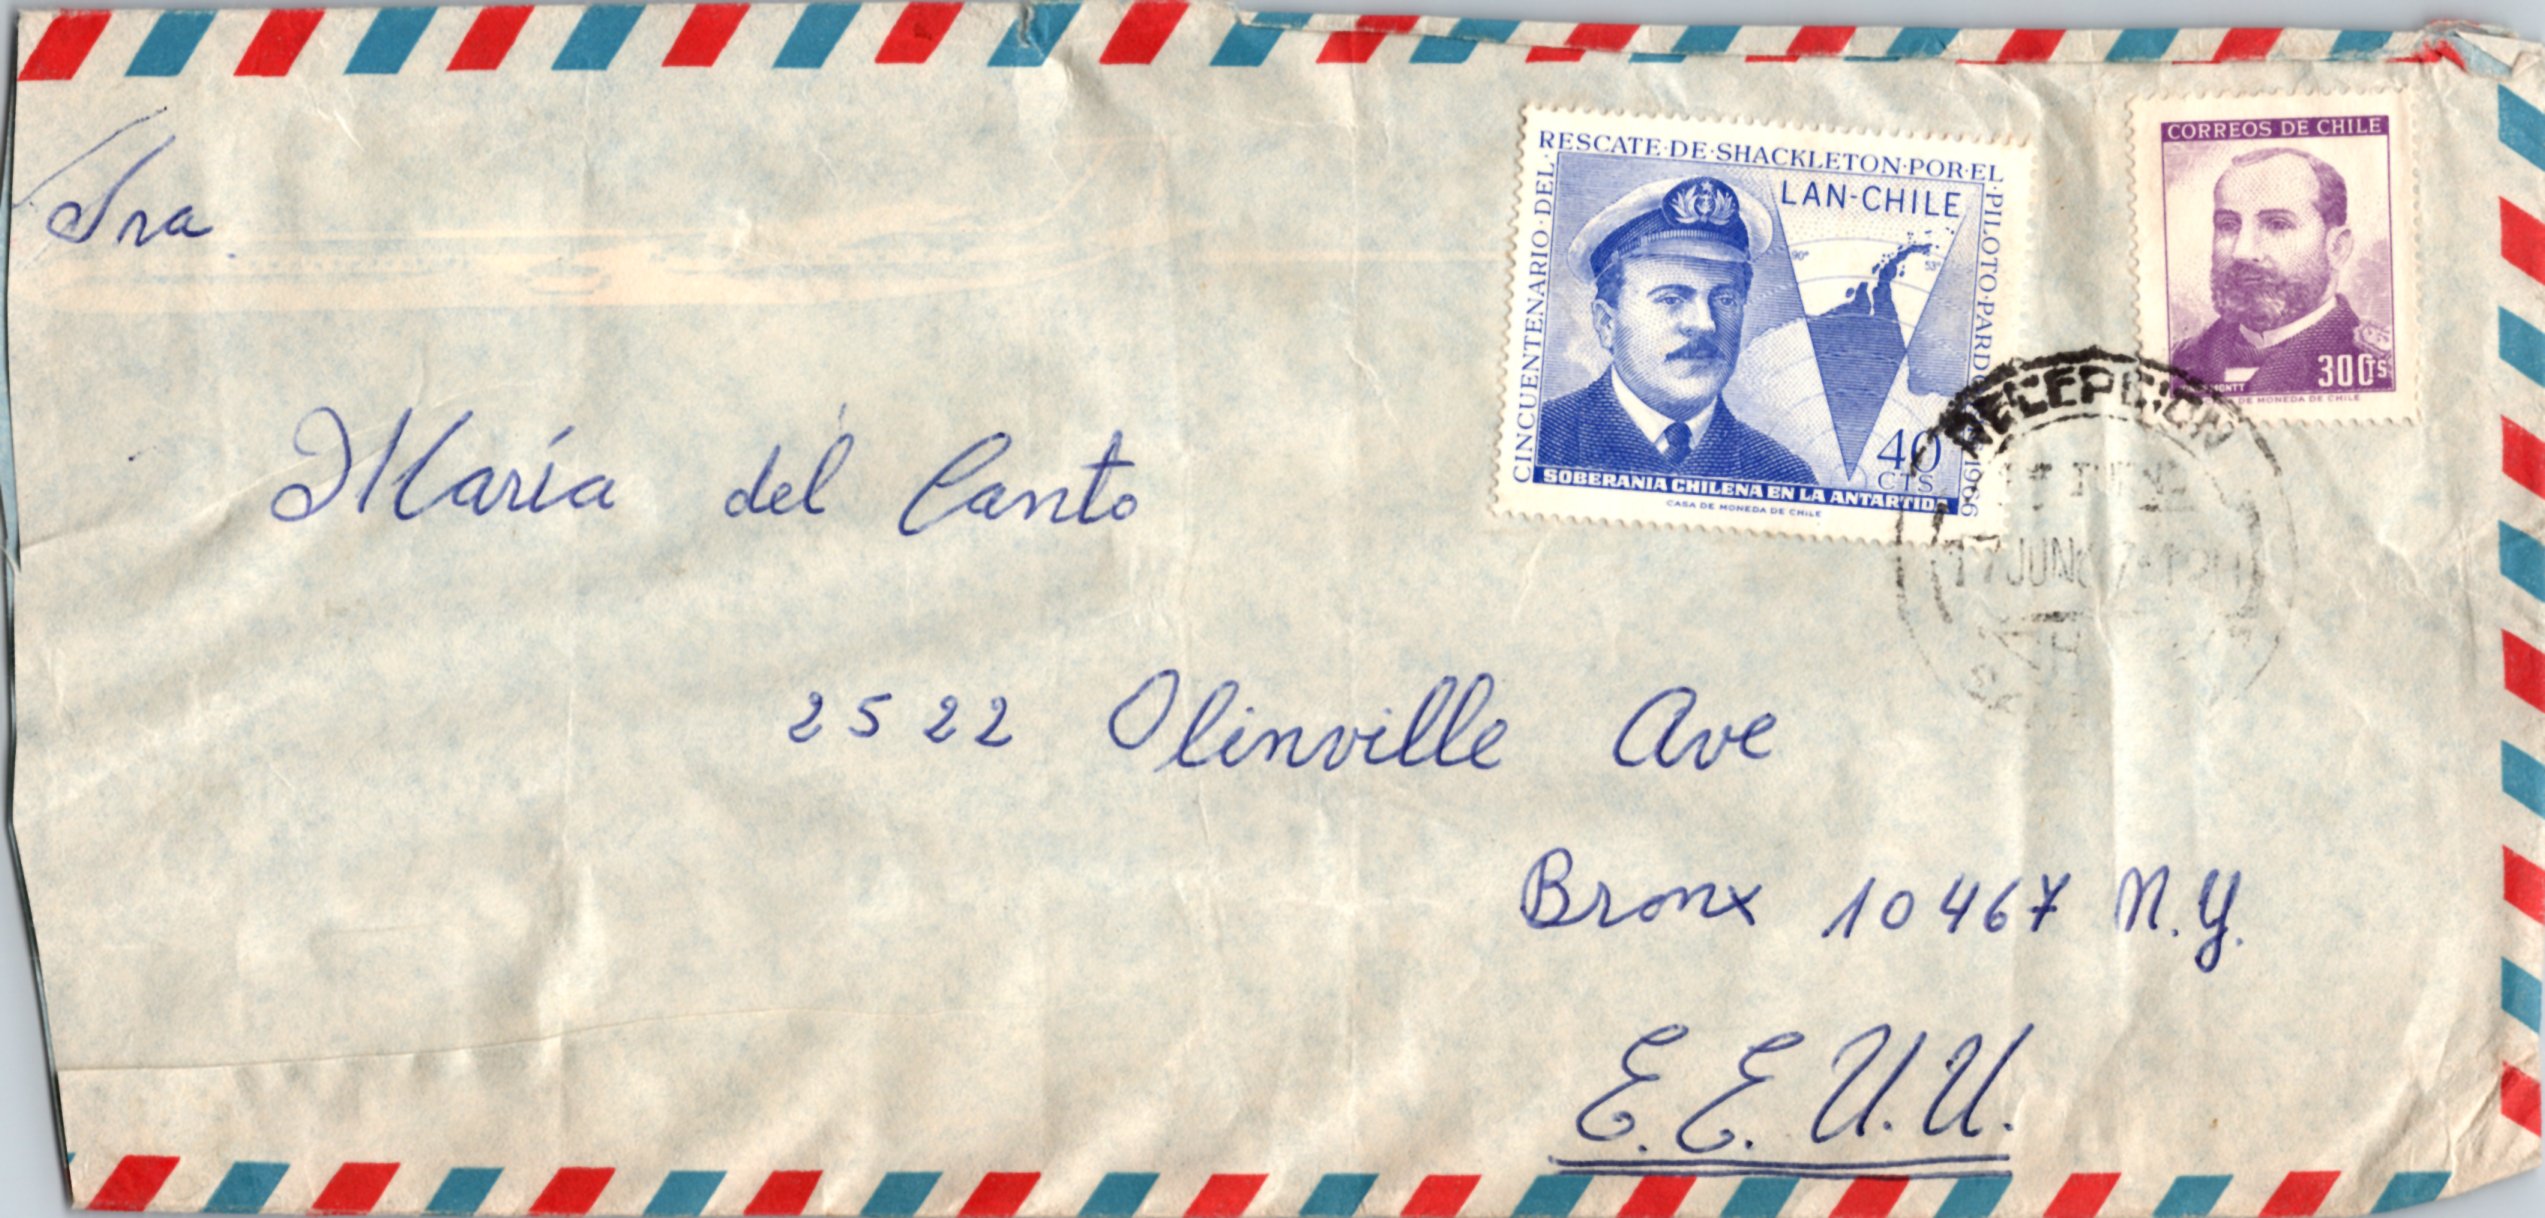 Sra.
María del Canto
2522 Olinville Ave
Bronx 10467 N.Y.
E.E.U.U.
CINCUENTENARIO·DEL·RESCATE·DE·SHACKLETON·POR·EL·PILOTO·PARDO 1966
LAN-CHILE
90°
53°
40
CTS
SOBERANIA CHILENA EN LA ANTARTIDA
CASA DE MONEDA DE CHILE
CORREOS DE CHILE
30 CTS
MONTT
DE MONEDA DE CHILE
RECEPCION
17 JUN 67